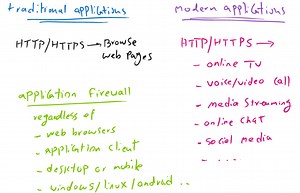 traditional applications
HTTP/HTTPS → Browse
web Pages
application firewall
regardless of
- web browsers
- application client
- desktop or mobile
- windows/linux/android ..
modern applications
HTTP/HTTPS →
- online TV
- voice/video call
- media streaming
- online chat
- social media
- . . . .